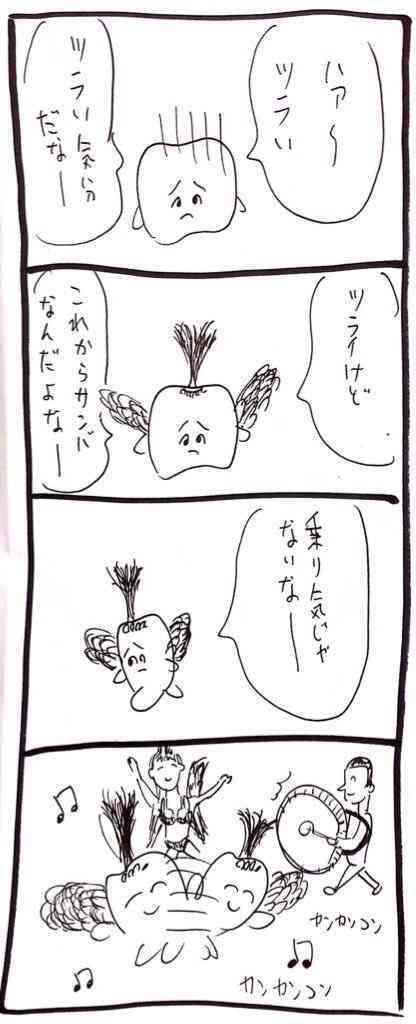 ハァ〜
ツラい
ツラい気分
だなー
ツライけど
これからサンバ
なんだよなー
乗り気じゃ
ないなー
カンカンコン
カンカンコン